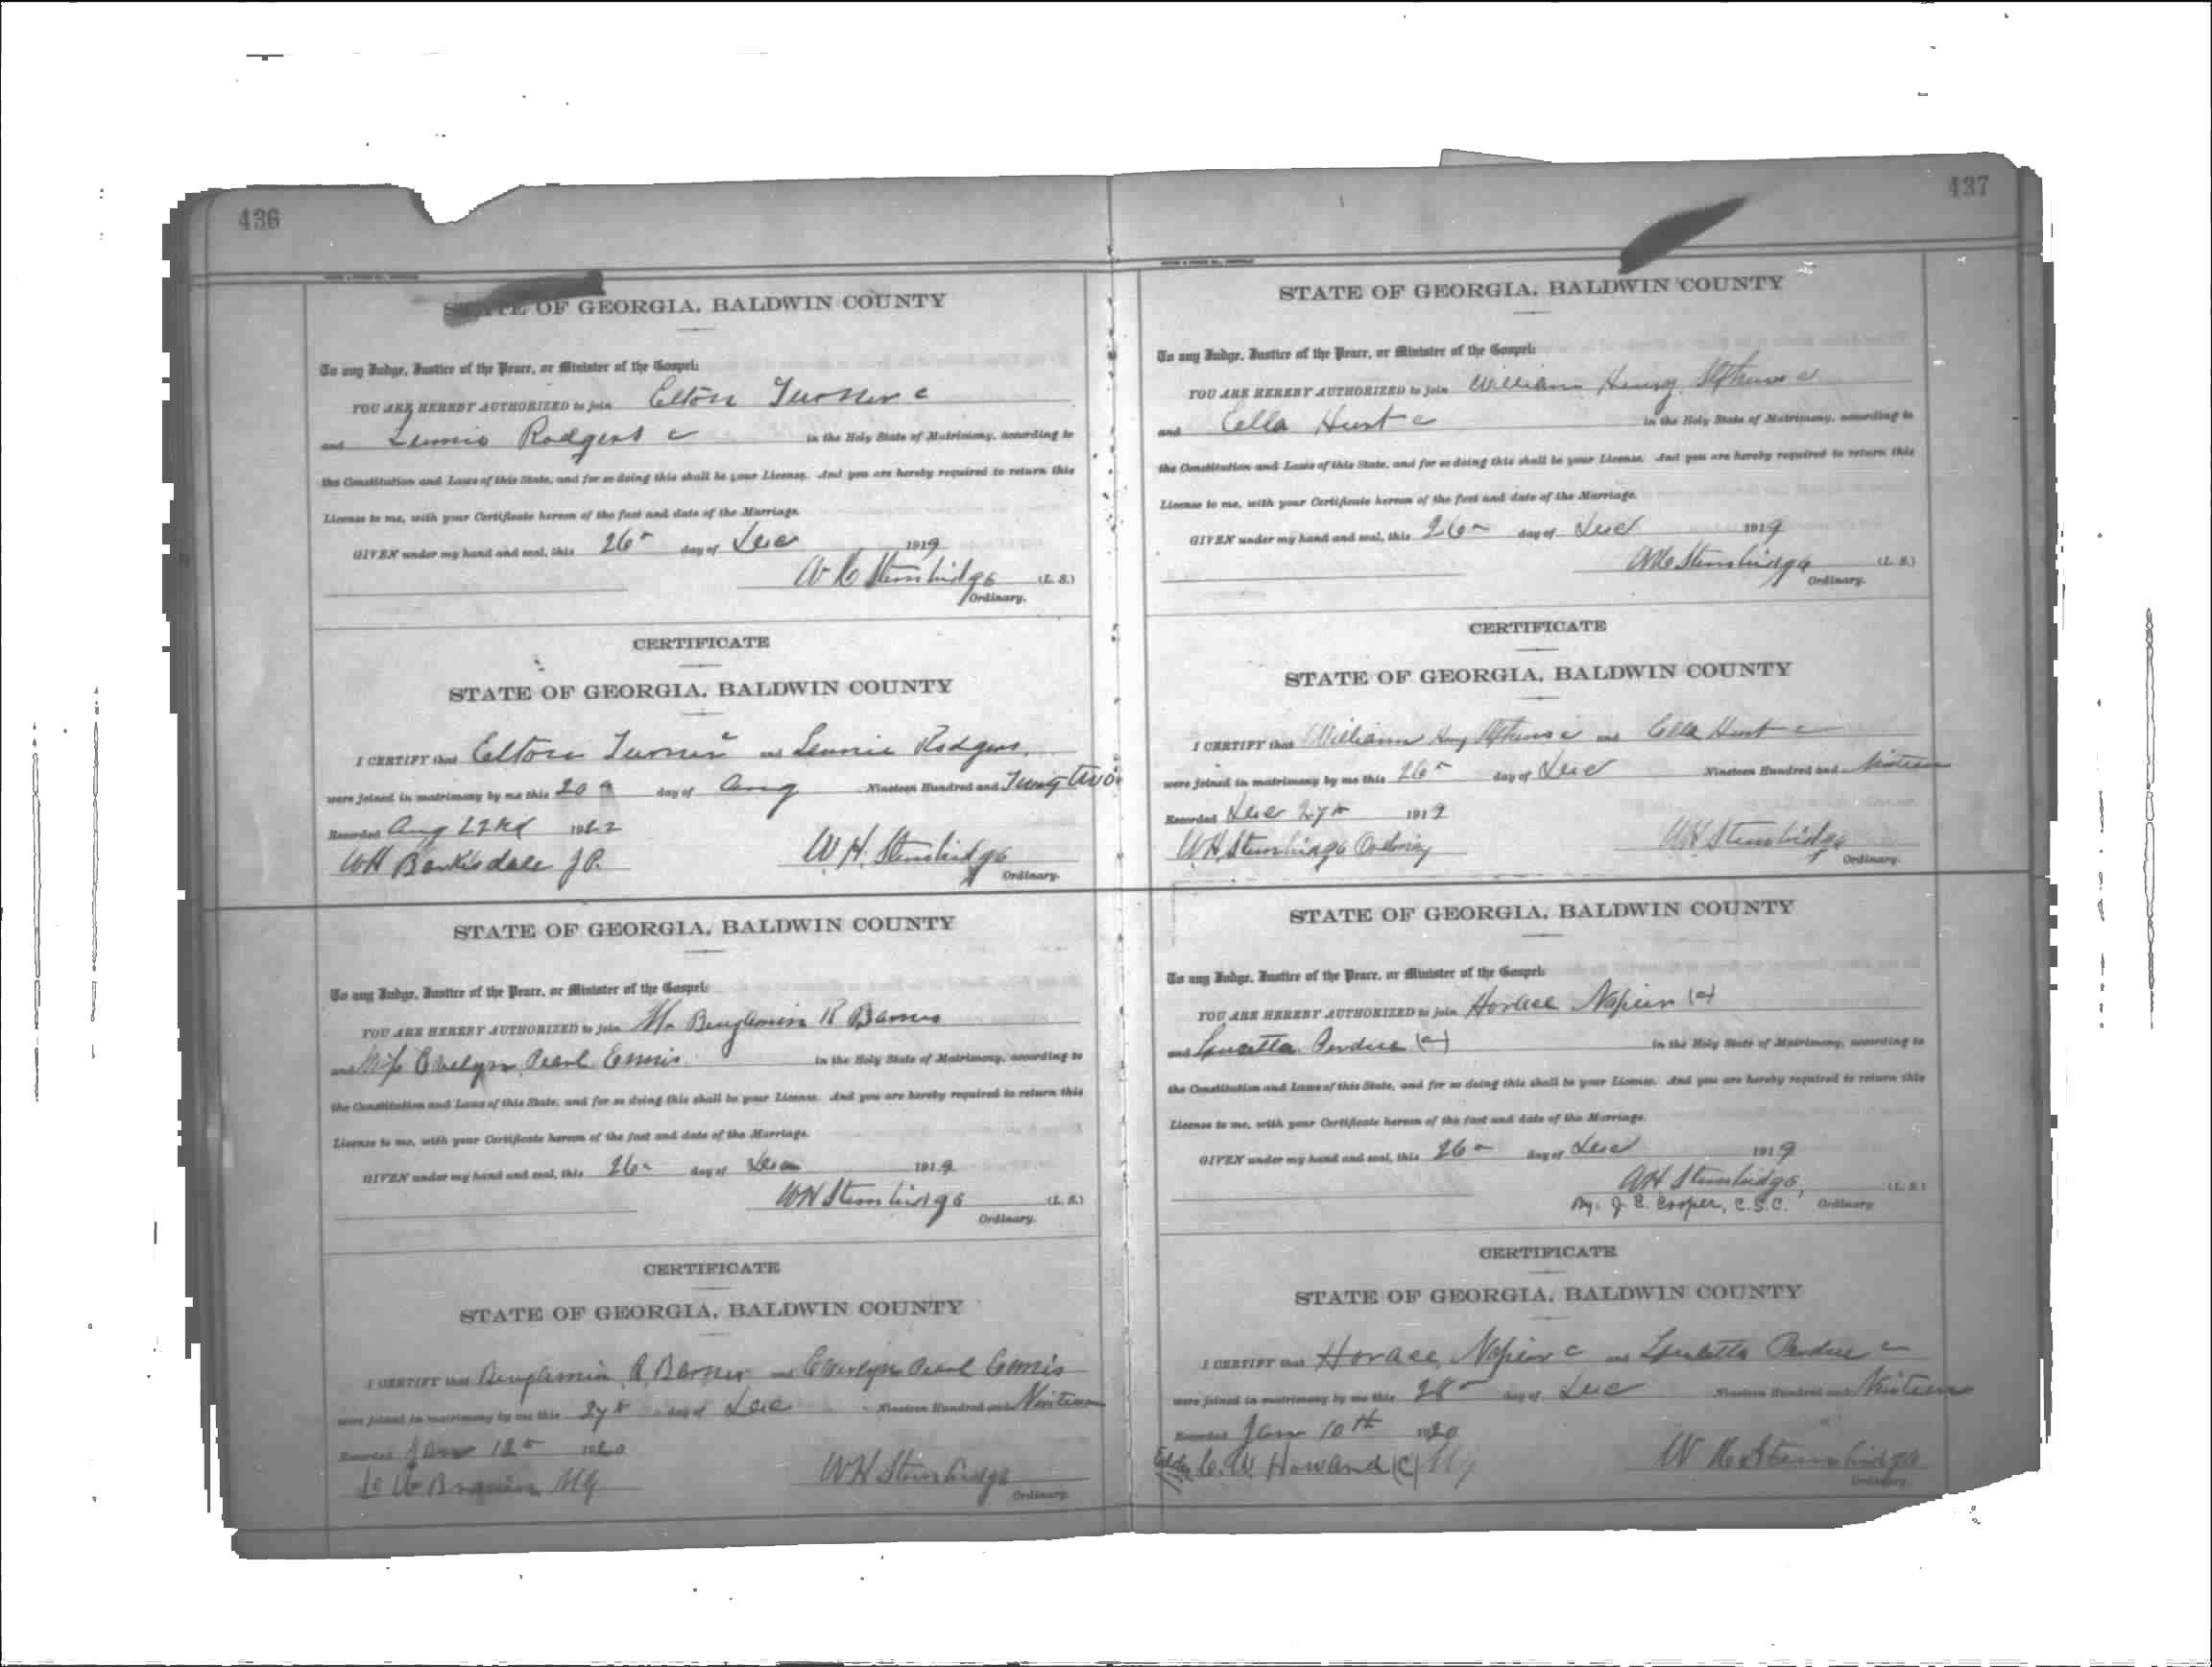 436
STATE OF GEORGIA, BALDWIN COUNTY
To any Judge, Justice of the Peace, or Minister of the Gospel:
YOU ARE HEREBY AUTHORIZED to join Elton Turner c
and Lennie Rodgers c in the Holy State of Matrimony, according to
the Constitution and Laws of this State, and for so doing this shall be your License. And you are hereby required to return this
License to me, with your Certificate hereon of the fact and date of the Marriage.
GIVEN under my hand and seal, this 26 day of Dec 1919
W H Stembridge (L. S.)
Ordinary.
CERTIFICATE
STATE OF GEORGIA, BALDWIN COUNTY
I CERTIFY that Elton Turner c and Lennie Rodgers
were joined in matrimony by me this 20 day of Aug Nineteen Hundred and Twenty two
Recorded Aug 22nd 1922
WH Barksdale J P. W. H. Stembridge
Ordinary.
STATE OF GEORGIA, BALDWIN COUNTY
To any Judge, Justice of the Peace, or Minister of the Gospel:
YOU ARE HEREBY AUTHORIZED to join Mr Benjamin R Barnes
and Miss Evelyn Pearl Ennis in the Holy State of Matrimony, according to
the Constitution and Laws of this State, and for so doing this shall be your License. And you are hereby required to return this
License to me, with your Certificate hereon of the fact and date of the Marriage.
GIVEN under my hand and seal, this 26 day of Dec 1919
WH Stembridge (L. S.)
Ordinary.
CERTIFICATE
STATE OF GEORGIA, BALDWIN COUNTY
I CERTIFY that Benjamin R Barnes and Evelyn Pearl Ennis
were joined in matrimony by me this 27 day of Dec Nineteen Hundred and Ninteen
Recorded Jan 12 1920
MG WH Stembridge
Ordinary.
437
STATE OF GEORGIA, BALDWIN COUNTY
To any Judge, Justice of the Peace, or Minister of the Gospel:
YOU ARE HEREBY AUTHORIZED to join William Henry c
and Ella Hunt c in the Holy State of Matrimony, according to
the Constitution and Laws of this State, and for so doing this shall be your License. And you are hereby required to return this
License to me, with your Certificate hereon of the fact and date of the Marriage.
GIVEN under my hand and seal, this 26 day of Dec 1919
WH Stembridge (L. S.)
Ordinary.
CERTIFICATE
STATE OF GEORGIA, BALDWIN COUNTY
I CERTIFY that William c and Ella Hunt c
were joined in matrimony by me this 26 day of Dec Nineteen Hundred and Ninteen
Recorded Dec 27 1919
WH Stembridge Ordinary WH Stembridge
Ordinary.
STATE OF GEORGIA, BALDWIN COUNTY
To any Judge, Justice of the Peace, or Minister of the Gospel:
YOU ARE HEREBY AUTHORIZED to join Horace Napier (c)
and Perdue (c) in the Holy State of Matrimony, according to
the Constitution and Laws of this State, and for so doing this shall be your License. And you are hereby required to return this
License to me, with your Certificate hereon of the fact and date of the Marriage.
GIVEN under my hand and seal, this 26 day of Dec 1919
WH Stembridge, (L. S.)
By. J. C. Cooper, C.S.C. Ordinary
CERTIFICATE
STATE OF GEORGIA, BALDWIN COUNTY
I CERTIFY that Horace Napier c and Perdue c
were joined in matrimony by me this 28 day of Dec Nineteen Hundred and Ninteen
Recorded Jan 10th 1920
Elder C. W. Howard (C) MG W H Stembridge
Ordinary.